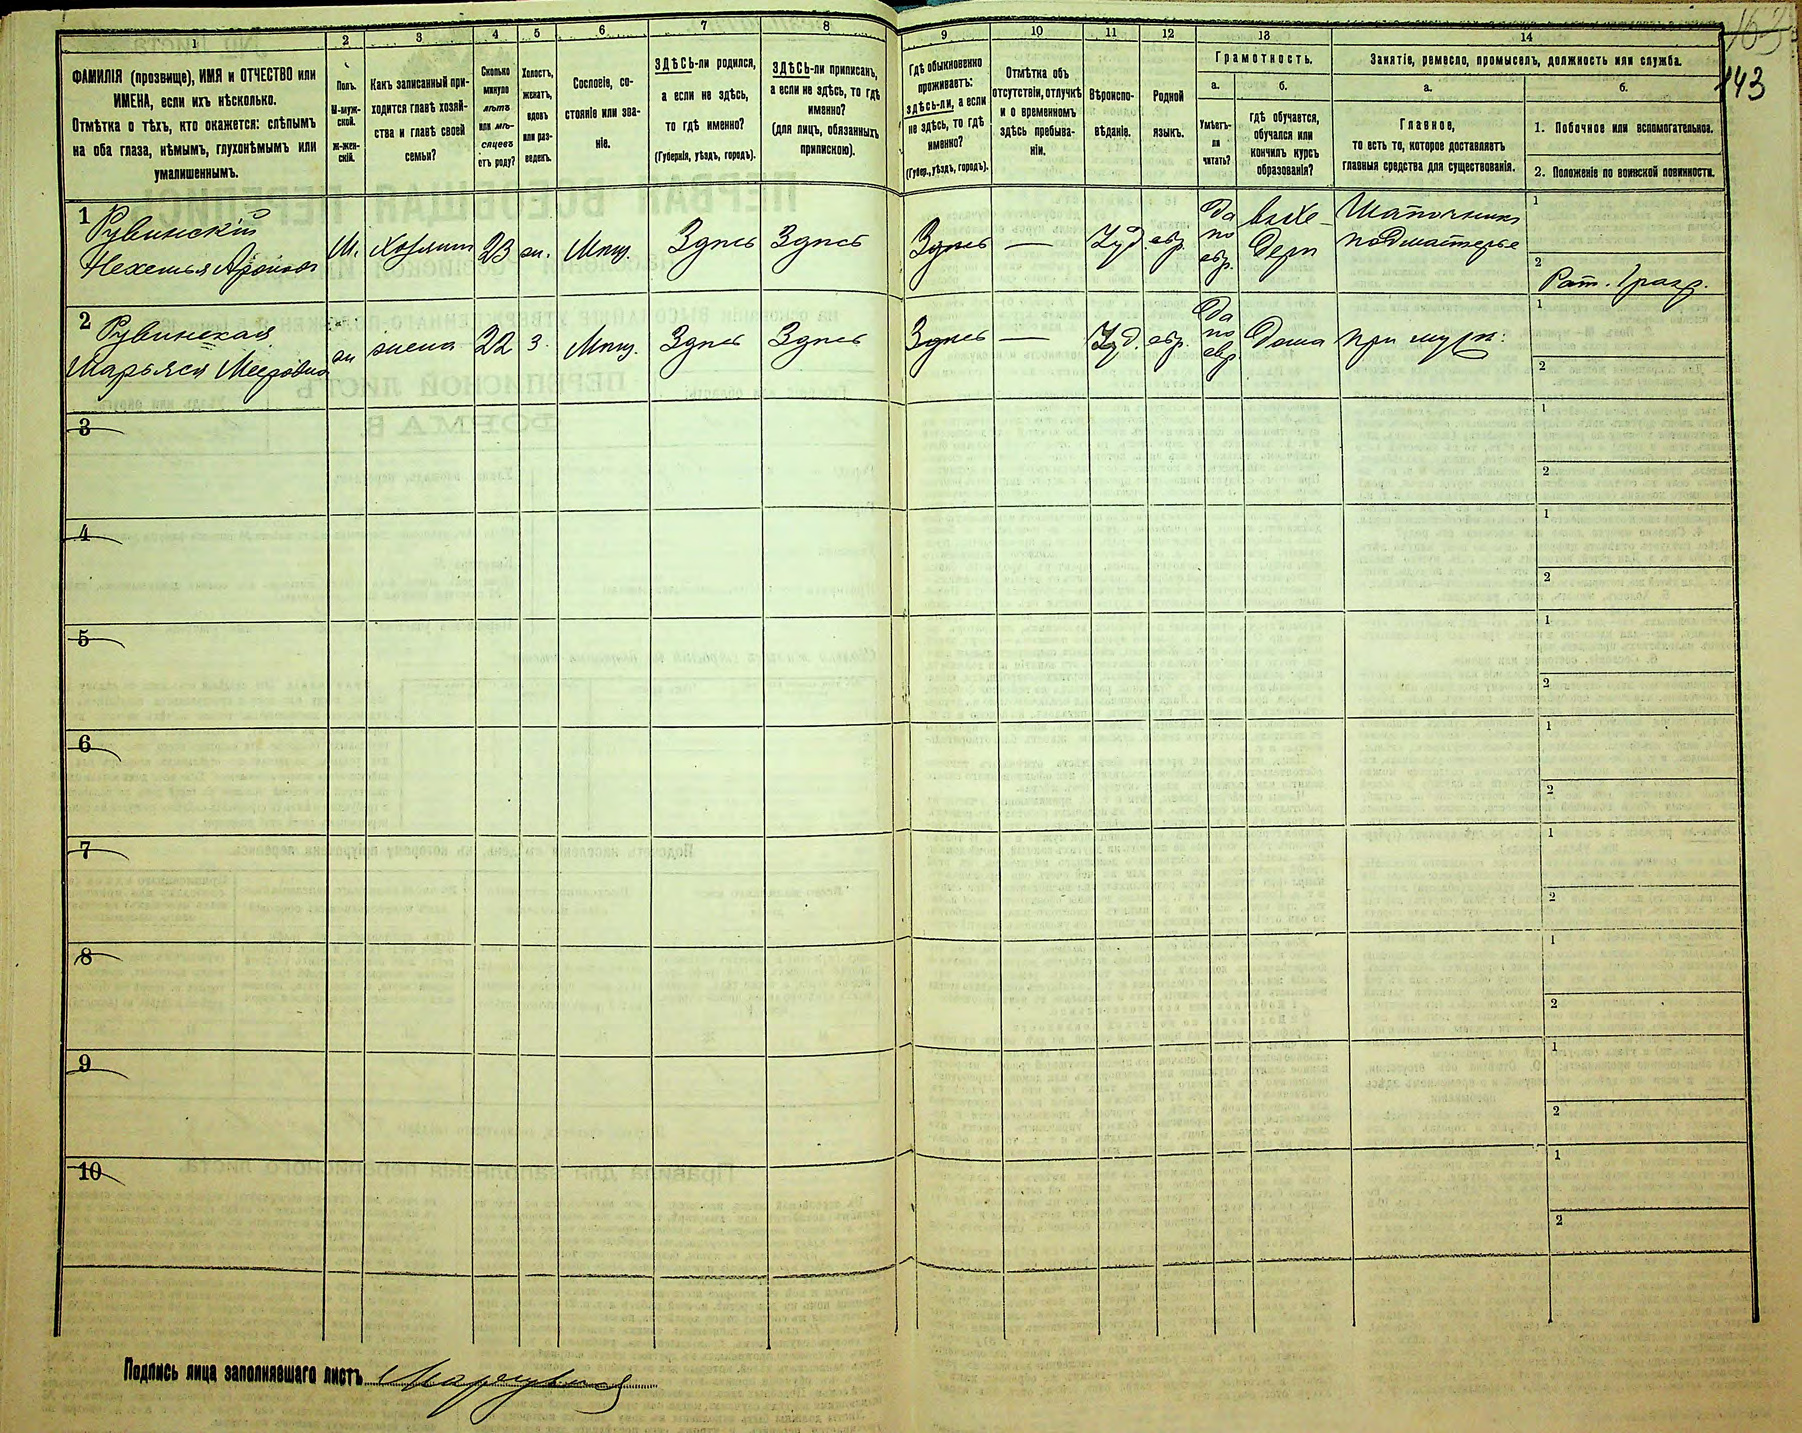 163
143
1
2
3
4
5
6
7
8
9
10
11
12
13
14
ФАМИЛІЯ (прозвище), ИМЯ и ОТЧЕСТВО или
ИМЕНА, если ихъ нѣсколько.
Отмѣтка о тѣхъ, кто окажется: слѣпымъ
на оба глаза, нѣмымъ, глухонѣмымъ или
умалишеннымъ.
Полъ.
М-муж-
ской.
Ж-жен-
скій.
Какъ записанный при-
ходится главѣ хозяй-
ства и главѣ своей
семьи?
Сколько
минуло
лѣтъ
или мѣ-
сяцевъ
отъ роду?
Холостъ,
женатъ,
вдовъ
или раз-
веденъ.
Сословіе, со-
стояніе или зва-
ніе.
ЗДѢСЬ-ли родился,
а если не здѣсь,
то гдѣ именно?
(Губернія, уѣздъ, городъ).
ЗДѢСЬ-ли приписанъ,
а если не здѣсь, то гдѣ
именно?
(для лицъ, обязанныхъ
припискою).
Гдѣ обыкновенно
проживаетъ:
здѣсь-ли, а если
не здѣсь, то гдѣ
именно?
(Губер., уѣздъ, городъ).
Отмѣтка объ
отсутствіи, отлучкѣ
и о временномъ
здѣсь пребыва-
ніи.
Вѣроиспо-
вѣданіе.
Родной
языкъ.
Грамотность.
а.
Умѣетъ-
ли
читать?
б.
гдѣ обучается,
обучался или
кончилъ курсъ
образованія?
Занятіе, ремесло, промыселъ, должность или служба.
а.
Главное,
то есть то, которое доставляетъ
главныя средства для существованія.
б.
1. Побочное или вспомогательное.
2. Положеніе по воинской повинности.
1
Рувинскій
М.
23
жн.
Мѣщ.
Здѣсь
Здѣсь
Здѣсь
—
Іуд.
евр.
да
по
евр.
въ Хе-
дерѣ
Шапочникъ
подмастерье
1
2
Рат. 1 разр.
2
Рувинская
жн
жена
22
з.
Мѣщ.
Здѣсь
Здѣсь
Здѣсь
—
Іуд.
евр.
да
по
евр
дома
при мужѣ.
1
2
3
1
2
4
1
2
5
1
2
6
1
2
7
1
2
8
1
2
9
1
2
10
1
2
Подпись лица заполнявшаго листъ